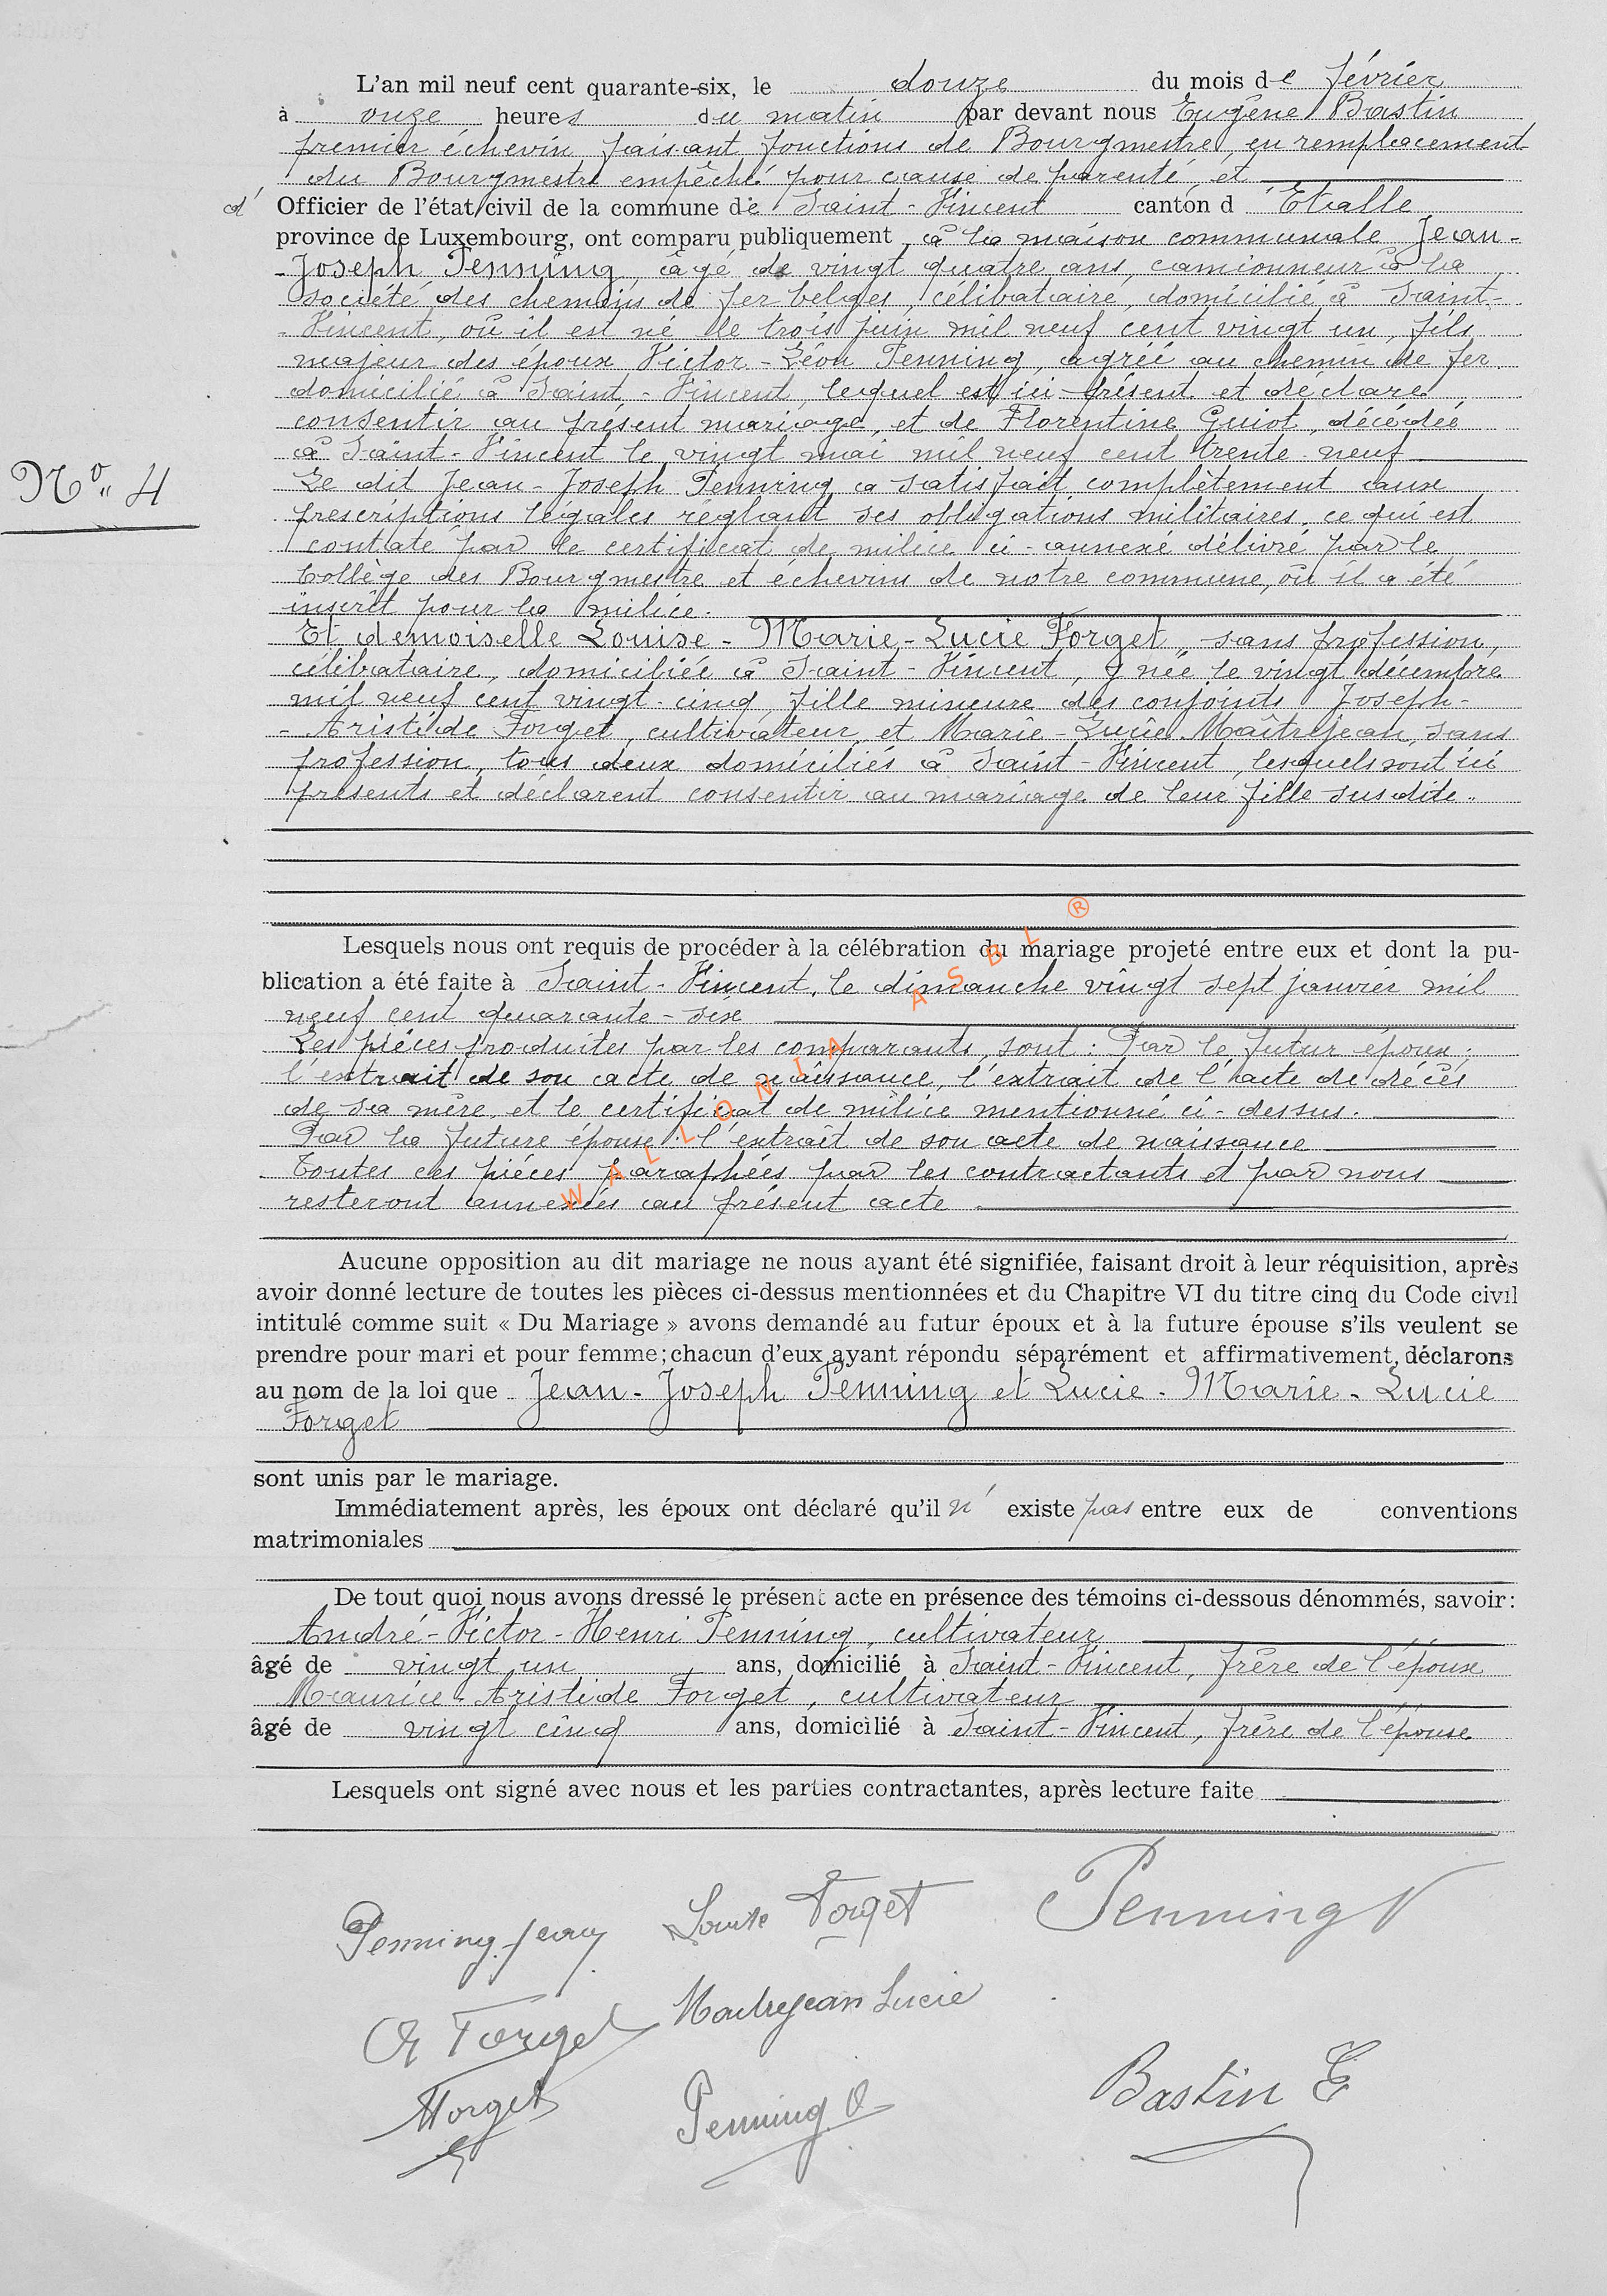 L'an mil neuf cent quarante-six, le douze du mois de février
à onze heures du matin par devant nous Eugène Bastin
premier échevin faisant fonctions de Bourgmestre, en remplacement
du Bourgmestre empêché pour cause de parenté, et
d' Officier de l'état civil de la commune de Saint-Vincent canton d'Etalle
province de Luxembourg, ont comparu publiquement, à la maison communale Jean-
-Joseph Penning, âgé de vingt quatre ans, camionneur à la
société des chemins de fer belges, célibataire, domicilié à Saint-
-Vincent, où il est né le trois juin mil neuf cent vingt un, fils
majeur des époux Victor-Léon Penning, agréé au chemin de fer
domicilié à Saint-Vincent, lequel est ici présent et déclare
consentir au présent mariage, et de Florentine Guiot, décédée
à Saint-Vincent le vingt mai mil neuf cent trente-neuf
N° 4
Le dit Jean-Joseph Penning a satisfait complètement aux
prescriptions légales réglant ses obligations militaires, ce qui est
contaté par le certificat de milice ci-annexé délivré par le
Collège des Bourgmestre et échevins de notre commune, où il a été
inscrit pour la milice.
Et demoiselle Louise-Marie-Lucie Forget, sans profession,
célibataire, domiciliée à Saint-Vincent, y née le vingt décembre
mil neuf cent vingt-cinq, fille mineure des conjoints Joseph-
-Aristide Forget, cultivateur, et Marie-Lucie Maîtrejean, sans
profession, tous deux domiciliés à Saint-Vincent, lesquels sont ici
présents et déclarent consentir au mariage de leur fille susdite.
Lesquels nous ont requis de procéder à la célébration du mariage projeté entre eux et dont la pu-
blication a été faite à Saint-Vincent, le dimanche vingt sept janvier mil
neuf cent quarante-six
Les pièces produites par les comparants, sont: Par le futur époux;
l'extrait de son acte de naissance, l'extrait de l'acte de décès
de sa mère, et le certificat de milice mentionné ci-dessus.
Par la future épouse: l'extrait de son acte de naissance
Toutes ces pièces paraphées par les contractants et par nous
resteront annexées au présent acte
WALLONIA ASBL ®
Aucune opposition au dit mariage ne nous ayant été signifiée, faisant droit à leur réquisition, après
avoir donné lecture de toutes les pièces ci-dessus mentionnées et du Chapitre VI du titre cinq du Code civil
intitulé comme suit « Du Mariage » avons demandé au futur époux et à la future épouse s'ils veulent se
prendre pour mari et pour femme; chacun d'eux ayant répondu séparément et affirmativement, déclarons
au nom de la loi que Jean-Joseph Penning et Lucie-Marie-Lucie
Forget
sont unis par le mariage.
Immédiatement après, les époux ont déclaré qu'il n' existe pas entre eux de conventions
matrimoniales
De tout quoi nous avons dressé le présent acte en présence des témoins ci-dessous dénommés, savoir:
André-Victor-Henri Penning, cultivateur
âgé de vingt un ans, domicilié à Saint-Vincent, frère de l'époux
Maurice-Aristide Forget, cultivateur
âgé de vingt cinq ans, domicilié à Saint-Vincent, frère de l'épouse
Lesquels ont signé avec nous et les parties contractantes, après lecture faite
Penning Jean Louise Forget Penning V
Forget Maitrejean Lucie
Forget Penning Bastin E